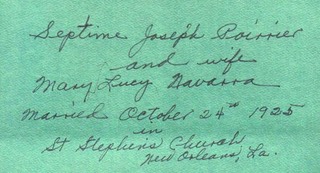 Septime Joseph Poirrier
and wife
Mary Lucy Navarra
Married October 24th 1925
in
St Stephen's Church
New Orleans, La.